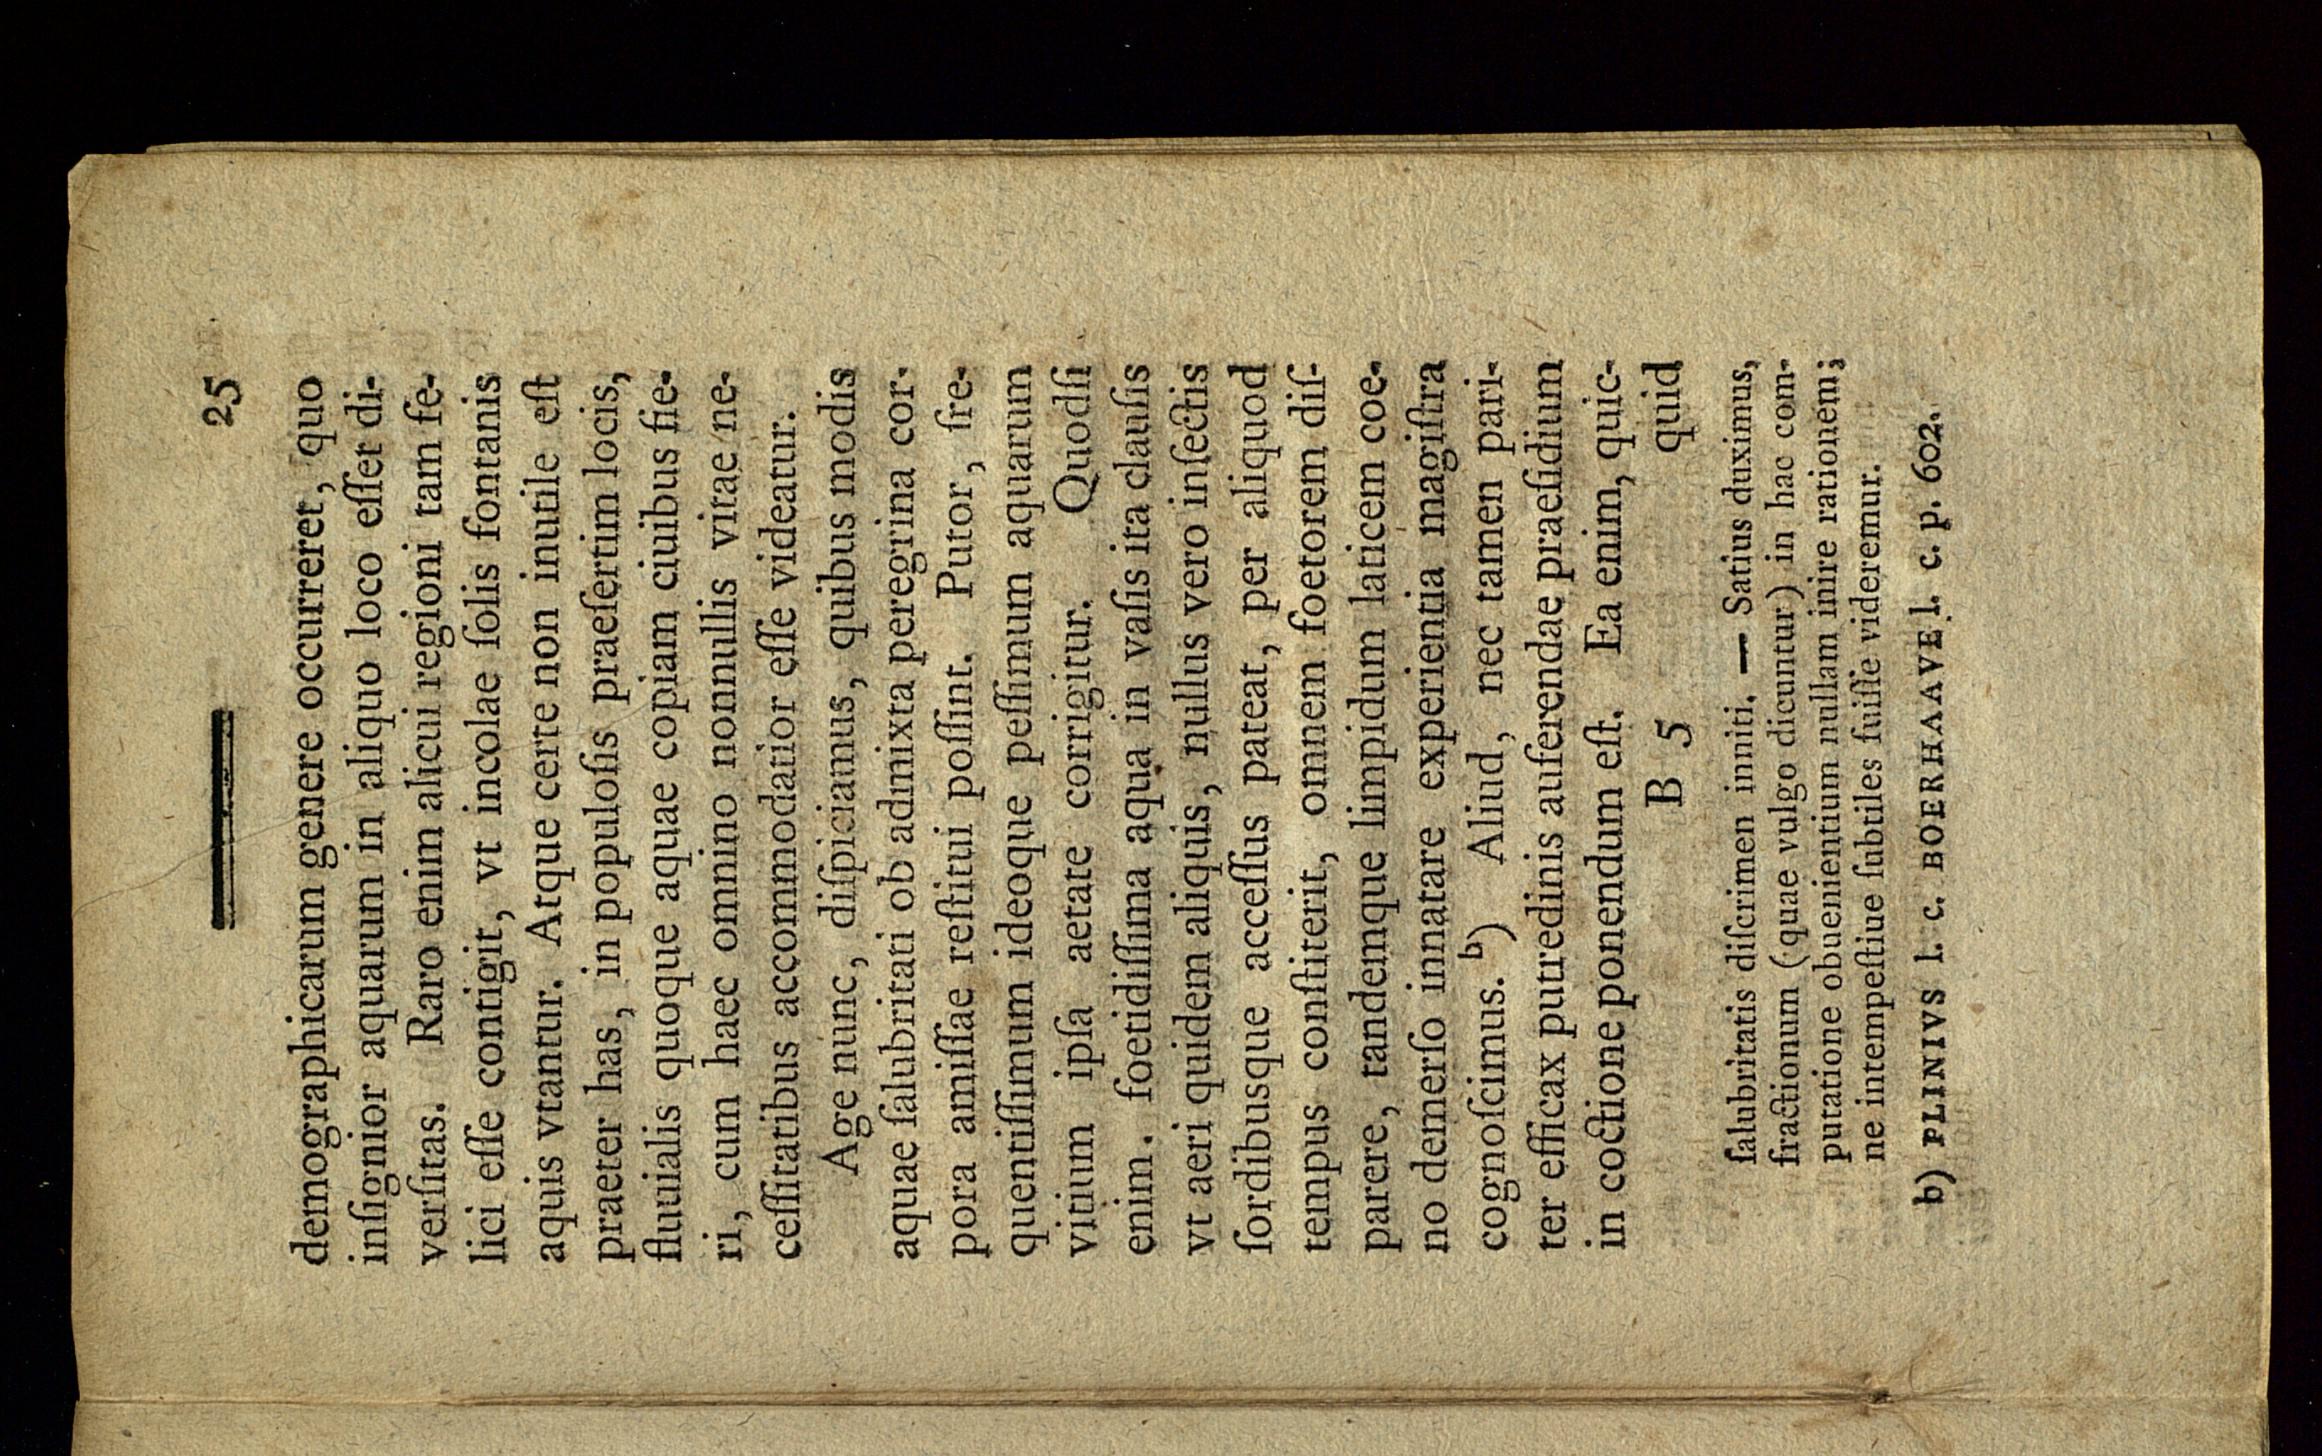 25
demographicarum genere occurreret, quo
inſignior aquarum in aliquo loco eſſet di-
verſitas. Raro enim alicui regioni tam fe-
lici eſſe contigit, vt incolae ſolis fontanis
aquis vtantur. Atque certe non inutile eſt
praeter has, in populoſis praeſertim locis,
fluuialis quoque aquae copiam ciuibus fie-
ri, cum haec omnino nonnullis vitae ne-
ceſſitatibus accommodatior eſſe videatur.
Age nunc, diſpiciamus, quibus modis
aquae ſalubritati ob admixta peregrina cor-
pora amiſſae reſtitui poſſint. Putor, fre-
quentiſſimum ideoque peſſimum aquarum
vitium ipſa aetate corrigitur. Quodſi
enim. foetidiſſima aqua in vaſis ita clauſis
vt aeri quidem aliquis, nullus vero inſectis
ſordibusque acceſſus pateat, per aliquod
tempus conſtiterit, omnem foetorem diſ-
parere, tandemque limpidum laticem coe-
no demerſo innatare experientia magiſtra
cognoſcimus. b) Aliud, nec tamen pari-
ter efficax putredinis auferendae praeſidium
in coctione ponendum eſt. Ea enim, quic-
B 5 quid
ſalubritatis diſcrimen inniti. — Satius duximus,
fractionum (quae vulgo dicuntur) in hac com-
putatione obuenientium nullam inire rationem;
ne intempeſtiue ſubtiles fuiſſe videremur.
b) PLINIVS l. c. BOERHAAVE l. c. p. 602.